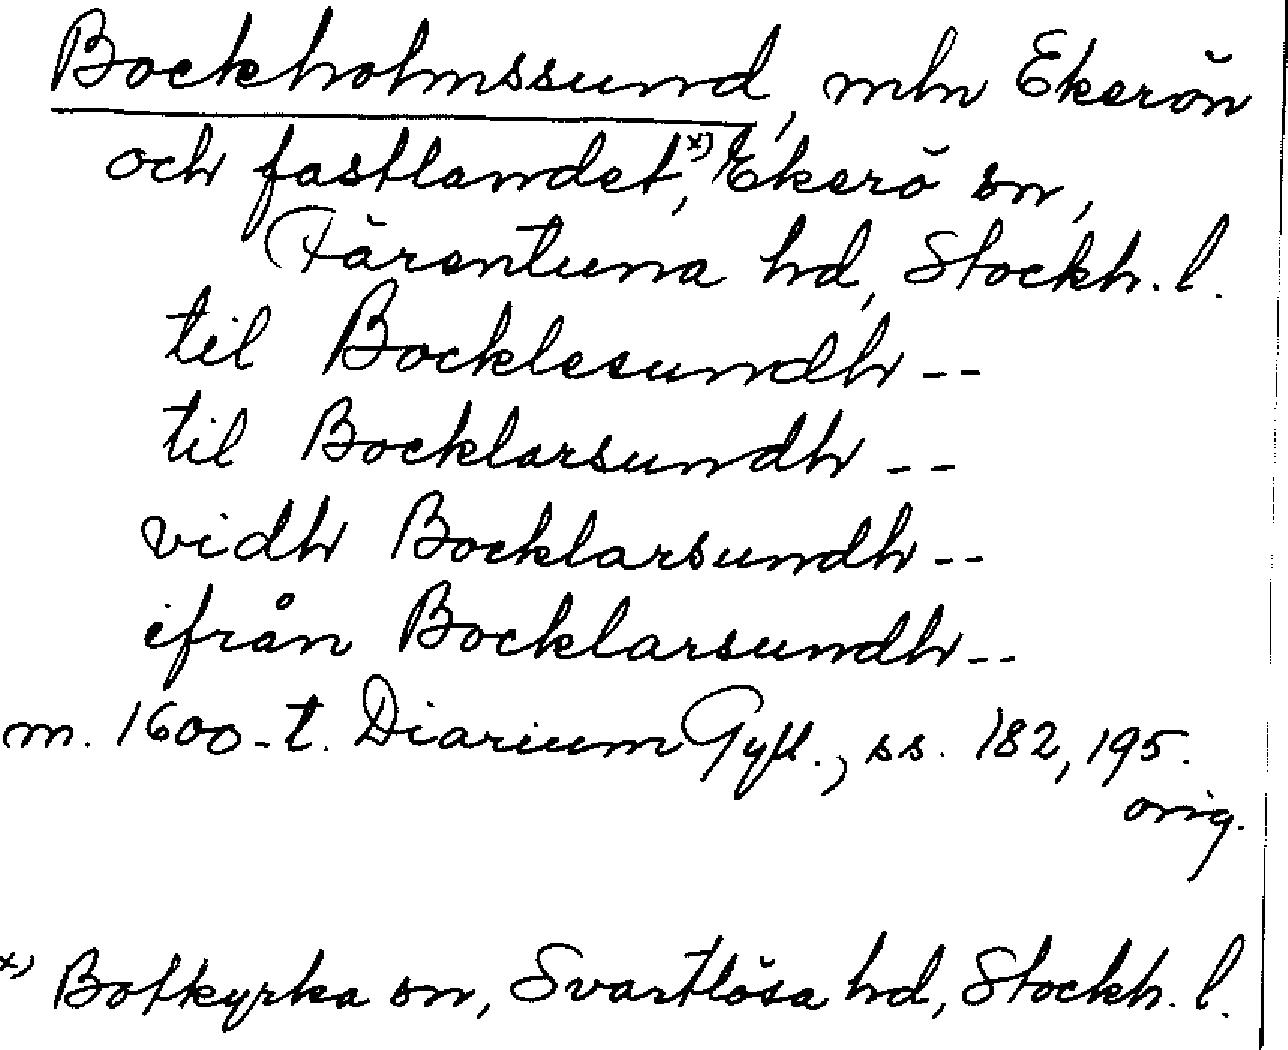 Bockholmssund, mln Ekerön
och fastlandet,x) Ekerö sn,
Färentuna hd, Stockh. l.
til Bocklesundh --
til Bocklarsundh --
vidh Bocklarsundh --
ifrån Bocklarsundh --
m. 1600-t. Diarium Gyll., ss. 182, 195.
orig.
x) Botkyrka sn, Svartlösa hd, Stockh. l.